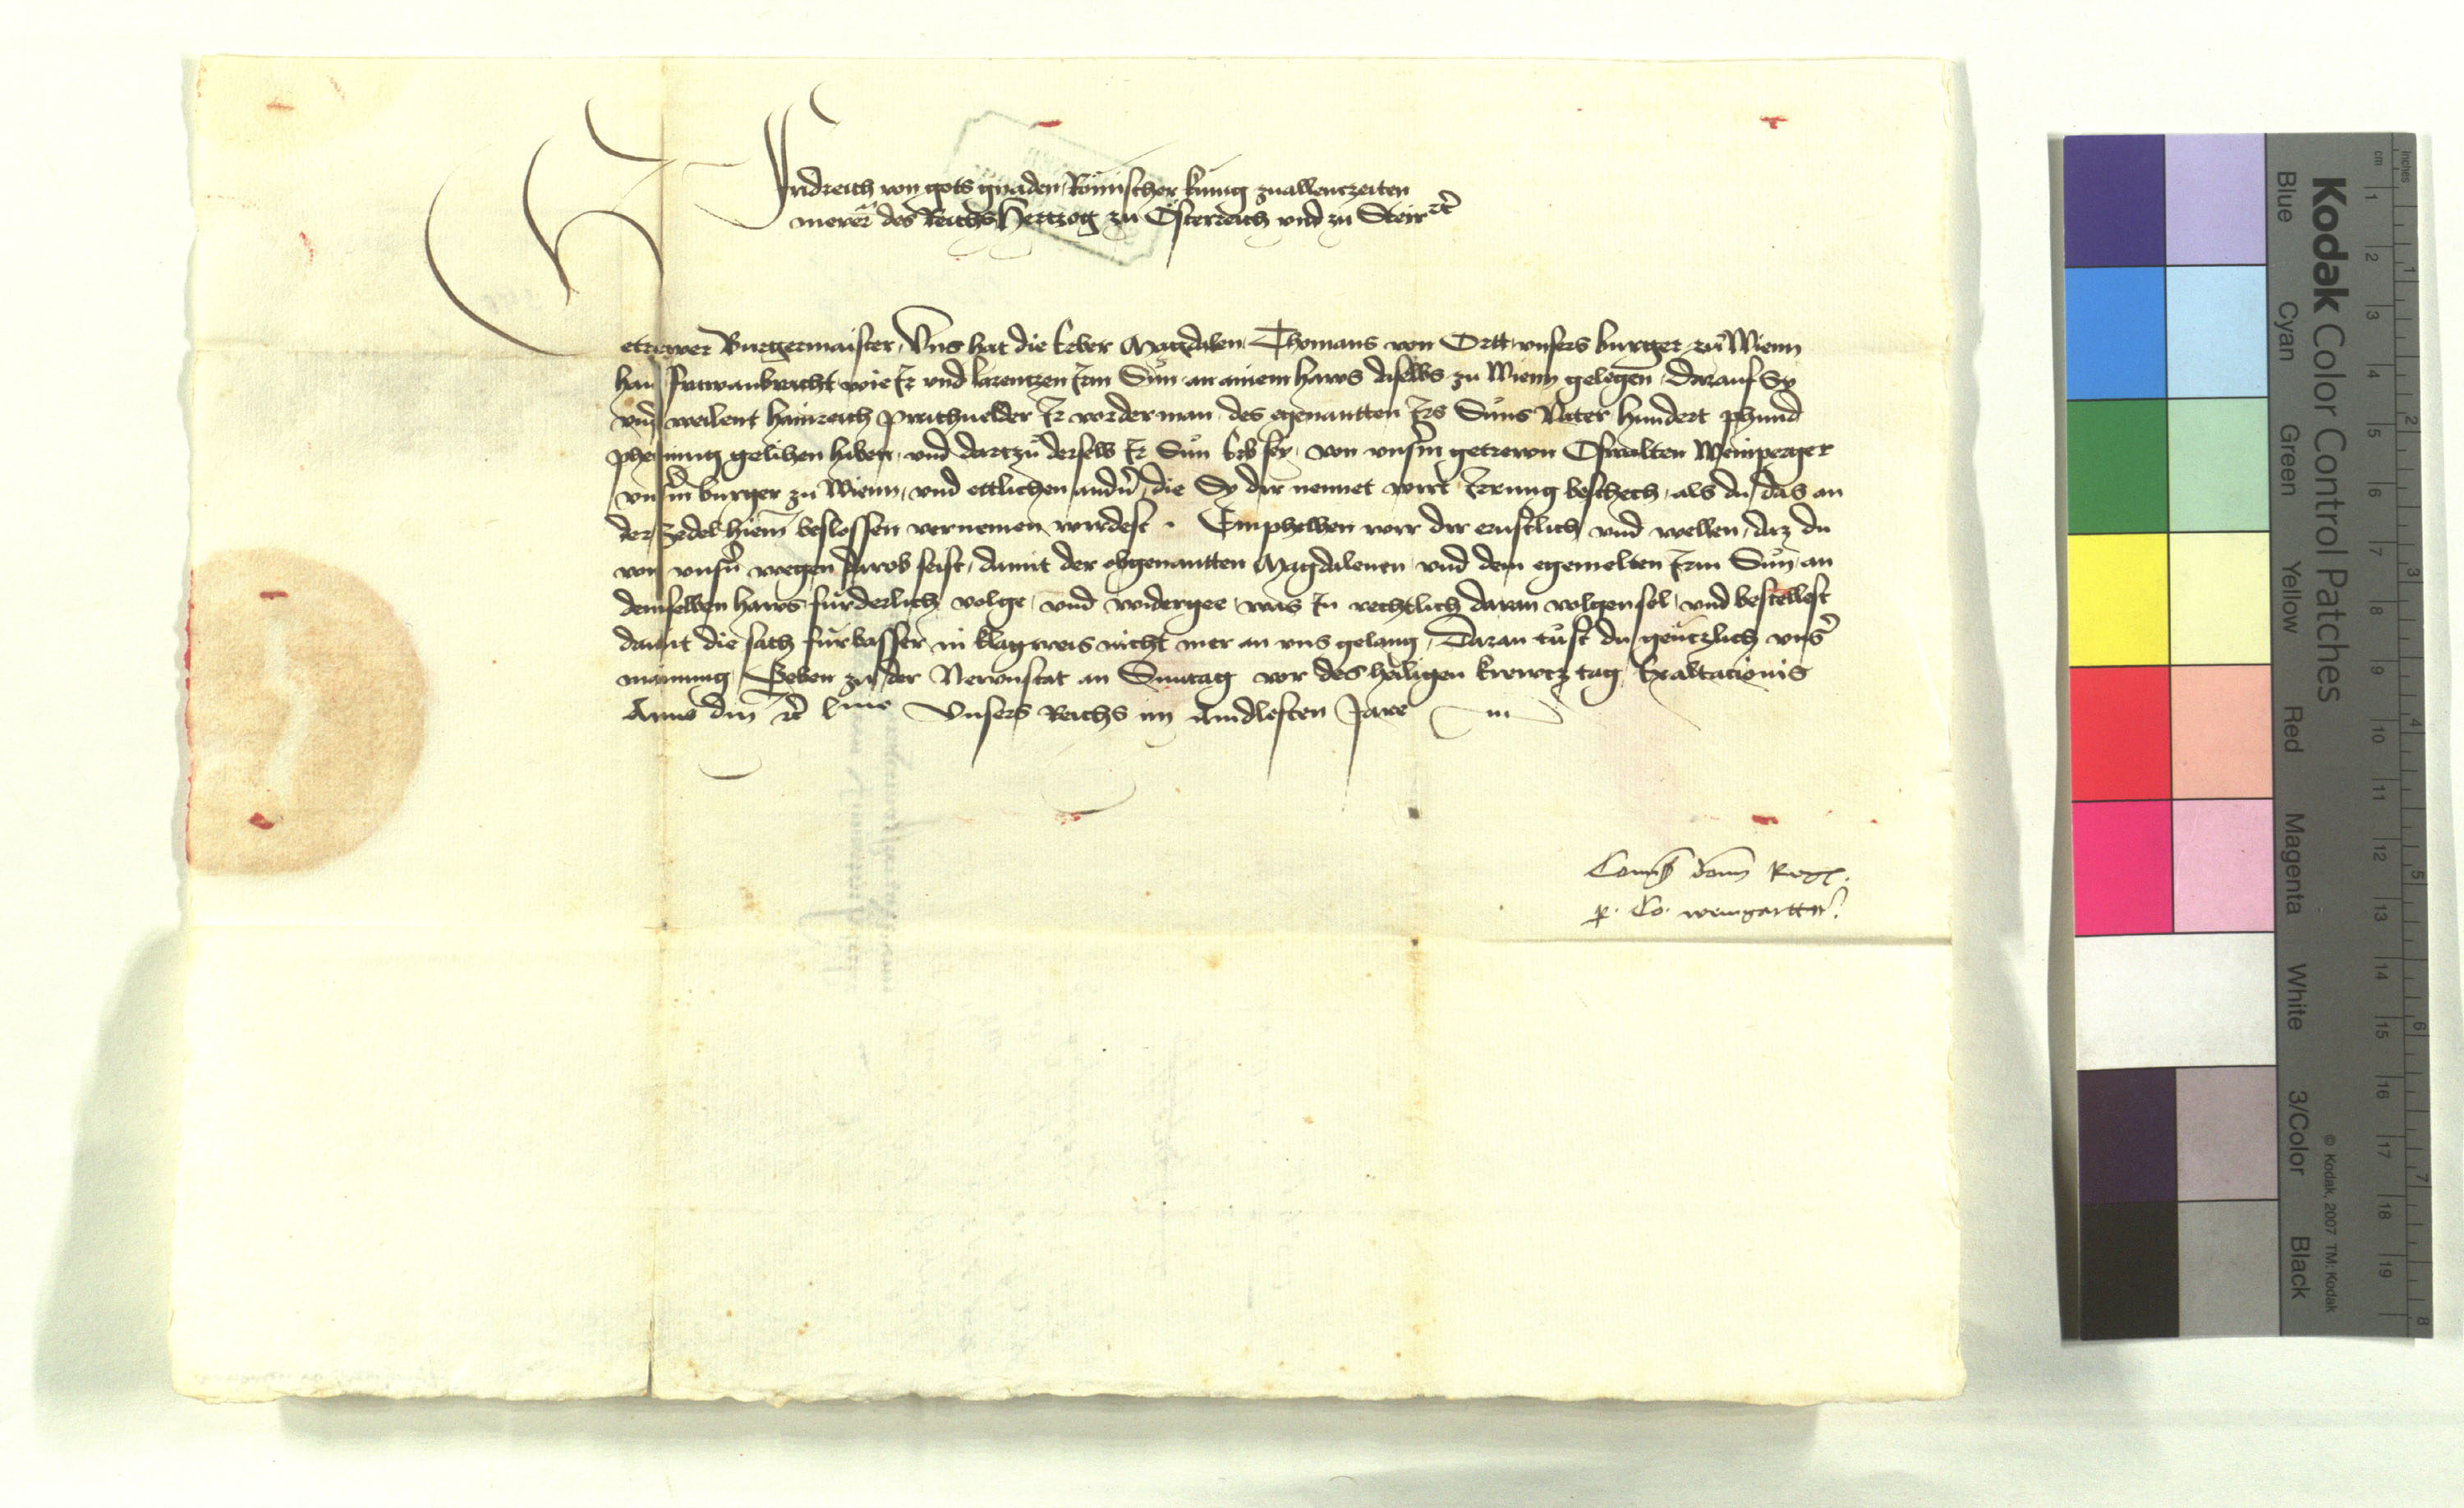 Fridreich von gots gnaden Römischer kunig zuallentzeiten
merer des Reichs Hertzog zu Österreich und zu Steir etc
Getrewer Burgermaister, Uns hat die erber Magdalen Thomans von Ortt unsers burger zu Wienn
hausfraw anbracht wie Ir und larentzen Irm Sun an ainem haws daselbs zu Wienn gelegen, darauf Sy
und weilent hainreich Ir vorder man des egenantten Irs Suns Vater hundert phund
phenning gelihen haben, und dartzu derselb Ir Sun erb sey, von unserm getrewn Oswalten Weinperger
unserm burger zu Wienn, und ettlichen andern, die Sy dir nennet wirt Irrung beschech, als du das an
der Zedel hierin beslossen vernemen wirdest. Emphelhen wir dir ernstlich und wellen, daz du
von unsern wegen darob seist, damit der obgenantten Magdalenen und dem egemelten Irm Sun, an
demselben haws furderlich volge, und widergee, was In rechtlich daran volgen sol, und bestellest
damit die sach furbasser in klagweis nicht mer an uns gelang, Daran tust du gentzlich unser
mainung, Geben zu der Newnstat an Sunntag vor des heiligen krewtz tag Exaltacionis
Anno dni etc lmo Unsers Reichs im Aindlesten Jare
Comissio domini Regis
p. Co. weingarttn
Kodak Color Control Patches
Blue Cyan Green Yellow Red Magenta White 3/Color Black
© Kodak, 2007 TM: Kodak
cm 1 2 3 4 5 6 7 8 9 10 11 12 13 14 15 16 17 18 19
inches 1 2 3 4 5 6 7 8